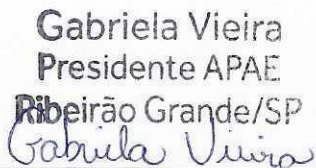 Gabriela Vieira
Presidente APAE
Ribeirão Grande/SP
Gabriela Vieira